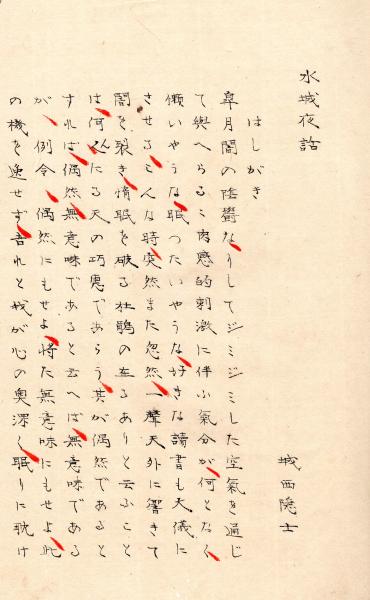 水城夜話
城西隠士
はしがき
皐月闇の陰鬱なりしてジミジミした空氣を通じ
て與へらるゝ肉感的刺激に伴ふ氣分が何となく
懶いやうな眠つたいやうな好きな讀書も大儀に
させるこんな時突然また忽然一聲天外に響きて
闇を裂き惰眠を破る杜鵑の在るありと云ふこと
は何んたる天の巧慮であらう其が偶然であると
すれば偶然無意味であると云へば無意味である
が、例令、偶然にもせよ將た無意味にもせよ此
の機を逸せず吾れと我が心の奥深く眠りに耽け